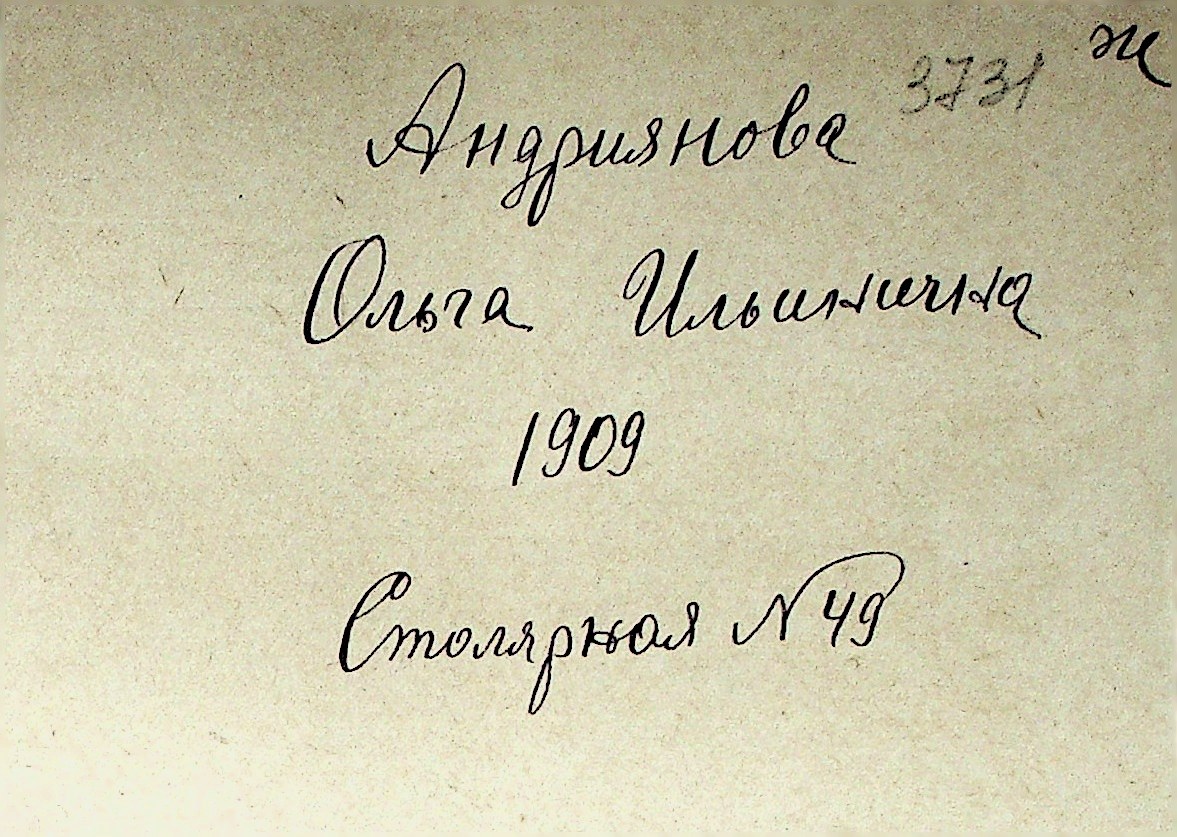 3731 ж
Андриянова
Ольга Ильинична
1909
Столярная N 49